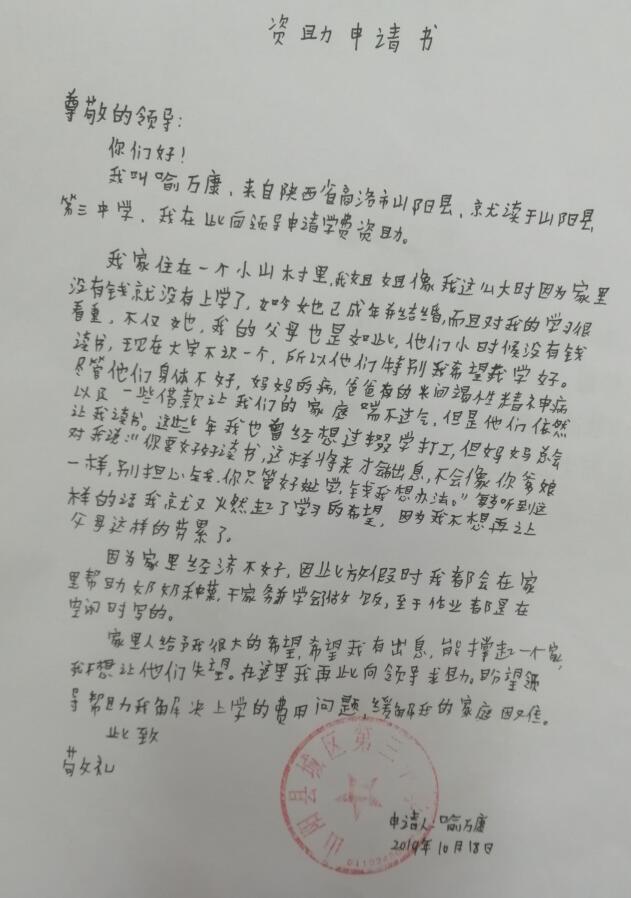 资助申请书
尊敬的领导:
你们好!
我叫喻万康，来自陕西省商洛市山阳县，就读于山阳县
第三中学，我在此向领导申请学费资助。
我家住在一个小山村里，我姐姐像我这么大时因为家里
没有钱就没有上学了，如今她已成年并结婚，而且对我的学习很
看重，不仅她，我的父母也是如此，他们小时候没有钱
读书，现在大字不识一个，所以他们特别希望我学好。
尽管他们身体不好，妈妈的病，爸爸有的间竭性精神病
以及一些借款让我们的家庭喘不过气，但是他们依然
让我读书。这些年我也曾经想过辍学打工，但妈妈总会
对我说:"你要好好读书，这样将来才会出息，不会像你爹娘
一样，别担心钱，你只管好好学，钱我想办法。"每每听到这
样的话我就又燃起了学习的希望，因为我不想再让
父母这样的背累了。
因为家里经济不好，因此放假时我都会在家
里帮助奶奶种菜，干家务并学会做饭，至于作业都是在
空闲时写的。
家里人给予我很大的希望，希望我有出息，能撑起一个家，
我不想让他们失望。在这里我再此向领导求助。盼望领
导帮助我解决上学的费用问题，缓解我的家庭困难。
此致
敬礼
山阳县城区第三中学
申请人:喻万康
2019年10月18日